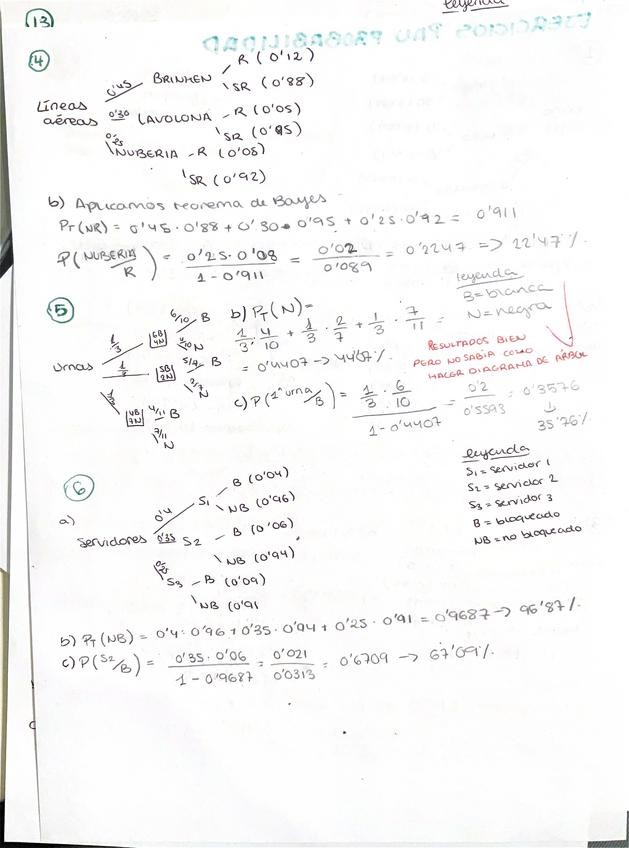 leyenda
13
EJERCICIOS PAU PROBABILIDAD
4
Líneas aéreas
0'45 BRINHEN
R (0'12)
SR (0'88)
0'30 LAVOLONA - R (0'05)
SR (0'95)
0'25 NUBERIA - R (0'08)
SR (0'92)
b) Aplicamos teorema de Bayes
PT(NR) = 0'45·0'88 + 0'30·0'95 + 0'25·0'92 = 0'911
P(NUBERIA/R) = 0'25·0'08 / 1-0'911 = 0'02 / 0'089 = 0'2247 => 22'47%.
leyenda
B = blanca
N = negra
5
urnas
1/3 6B 4N 6/10 B
4/10 N
1/3 5B 2N 5/7 B
2/7 N
1/3 4B 7N 4/11 B
7/11 N
b) PT(N) =
1/3 · 4/10 + 1/3 · 2/7 + 1/3 · 7/11 =
= 0'4407 → 44'07%.
RESULTADOS BIEN
PERO NO SABIA COMO
HACER DIAGRAMA DE ÁRBOL
c) P(1ª urna/B) = 1/3 · 6/10 / 1-0'4407 = 0'2 / 0'5593 = 0'3576
↓
35'76%
6
leyenda
S1 = servidor 1
S2 = servidor 2
S3 = servidor 3
B = bloqueado
NB = no bloqueado
a)
servidores
0'4 S1 - B (0'04)
NB (0'96)
0'35 S2 - B (0'06)
NB (0'94)
0'25 S3 - B (0'09)
NB (0'91
b) PT(NB) = 0'4·0'96 + 0'35·0'94 + 0'25·0'91 = 0'9687 → 96'87%.
c) P(S2/B) = 0'35·0'06 / 1-0'9687 = 0'021 / 0'0313 = 0'6709 → 67'09%.